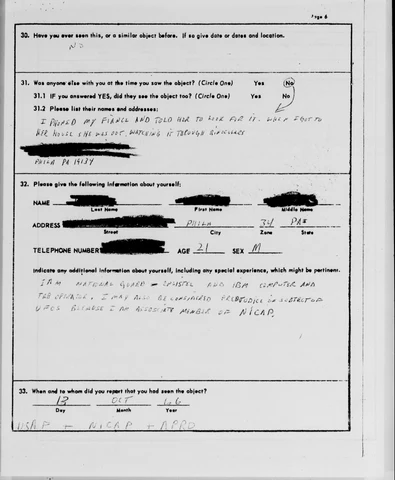 Page 6
30. Have you ever seen this, or a similar object before. If so give date or dates and location.
NO
31. Was anyone else with you at the time you saw the object? (Circle One) Yes No
31.1 IF you answered YES, did they see the object too? (Circle One) Yes No
31.2 Please list their names and addresses:
I PHONED MY FIANCE AND TOLD HER TO LOOK FOR IT. WHEN I GOT TO
HER HOUSE SHE WAS OUT WATCHING IT THROUGH BINOCULARS
PHILA PA 19134
32. Please give the following information about yourself:
NAME
Last Name First Name Middle Name
ADDRESS PHILA 34 PA
Street City Zone State
TELEPHONE NUMBER AGE 21 SEX M
Indicate any additional information about yourself, including any special experience, which might be pertinent.
I AM NATIONAL GUARD AND IBM COMPUTER AND
OPERATOR. I MAY ALSO BE CONSIDERED PREDJUDICE IN SUBJECT OF
UFOS BECAUSE I AM AN ASSOCIATE MEMBER OF NICAP.
33. When and to whom did you report that you had seen the object?
13 OCT 66
Day Month Year
USAF + NICAP + APRO